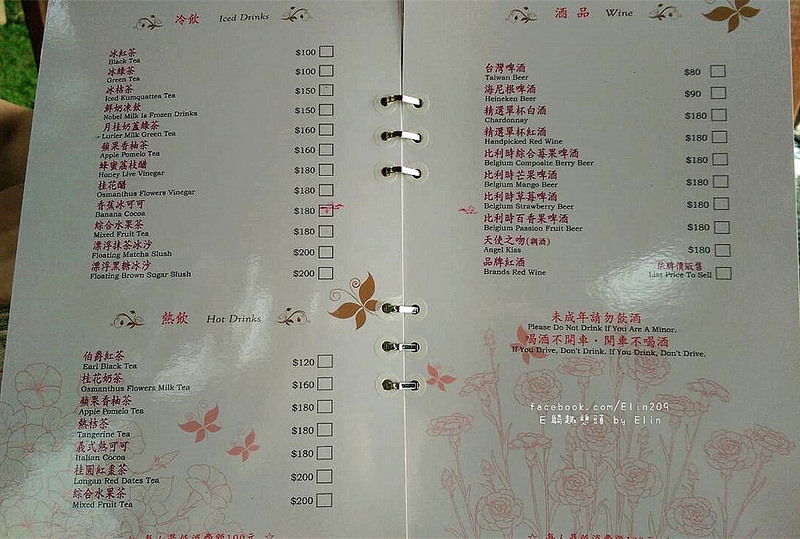 冷飲 Iced Drinks
冰紅茶 $100
Black Tea
冰綠茶 $100
Green Tea
冰桔茶 $150
Iced Kumquattea Tea
鮮奶凍飲 $150
Nobel Milk is Frozen Drinks
月桂奶蓋綠茶 $160
Lurler Milk Green Tea
蘋果香柚茶 $160
Apple Pomelo Tea
蜂蜜荔枝醋 $180
Honey Live Vinegar
桂花醋 $180
Osmanthus Flowers Vinegar
香蕉冰可可 $180
Banana Cocoa
綜合水果茶 $180
Mixed Fruit Tea
漂浮抹茶冰沙 $200
Floating Matcha Slush
漂浮黑糖冰沙 $200
Floating Brown Sugar Slush
熱飲 Hot Drinks
伯爵紅茶 $120
Earl Black Tea
桂花奶茶 $160
Osmanthus Flowers Milk Tea
蘋果香柚茶 $180
Apple Pomelo Tea
熱桔茶 $180
Tangerine Tea
義式熱可可 $180
Italian Cocoa
桂圓紅棗茶 $200
Longan Red Dates Tea
綜合水果茶 $200
Mixed Fruit Tea
☆ 每人最低消費額100元 ☆
酒品 Wine
台灣啤酒 $80
Taiwan Beer
海尼根啤酒 $90
Heineken Beer
精選單杯白酒 $180
Chardonnay
精選單杯紅酒 $180
Handpicked Red Wine
比利時綜合莓果啤酒 $180
Belgium Composite Berry Beer
比利時芒果啤酒 $180
Belgium Mango Beer
比利時草莓啤酒 $180
Belgium Strawberry Beer
比利時百香果啤酒 $180
Belgium Passion Fruit Beer
天使之吻(調酒) $180
Angel Kiss
品牌紅酒 依牌價販售
Brands Red Wine List Price To Sell
未成年請勿飲酒
Please Do Not Drink If You Are A Minor.
喝酒不開車・開車不喝酒
If You Drive, Don't Drink. If You Drink, Don't Drive.
facebook.com/Elin209
E騎趣想頭 by Elin
☆ 每人最低消費額100元